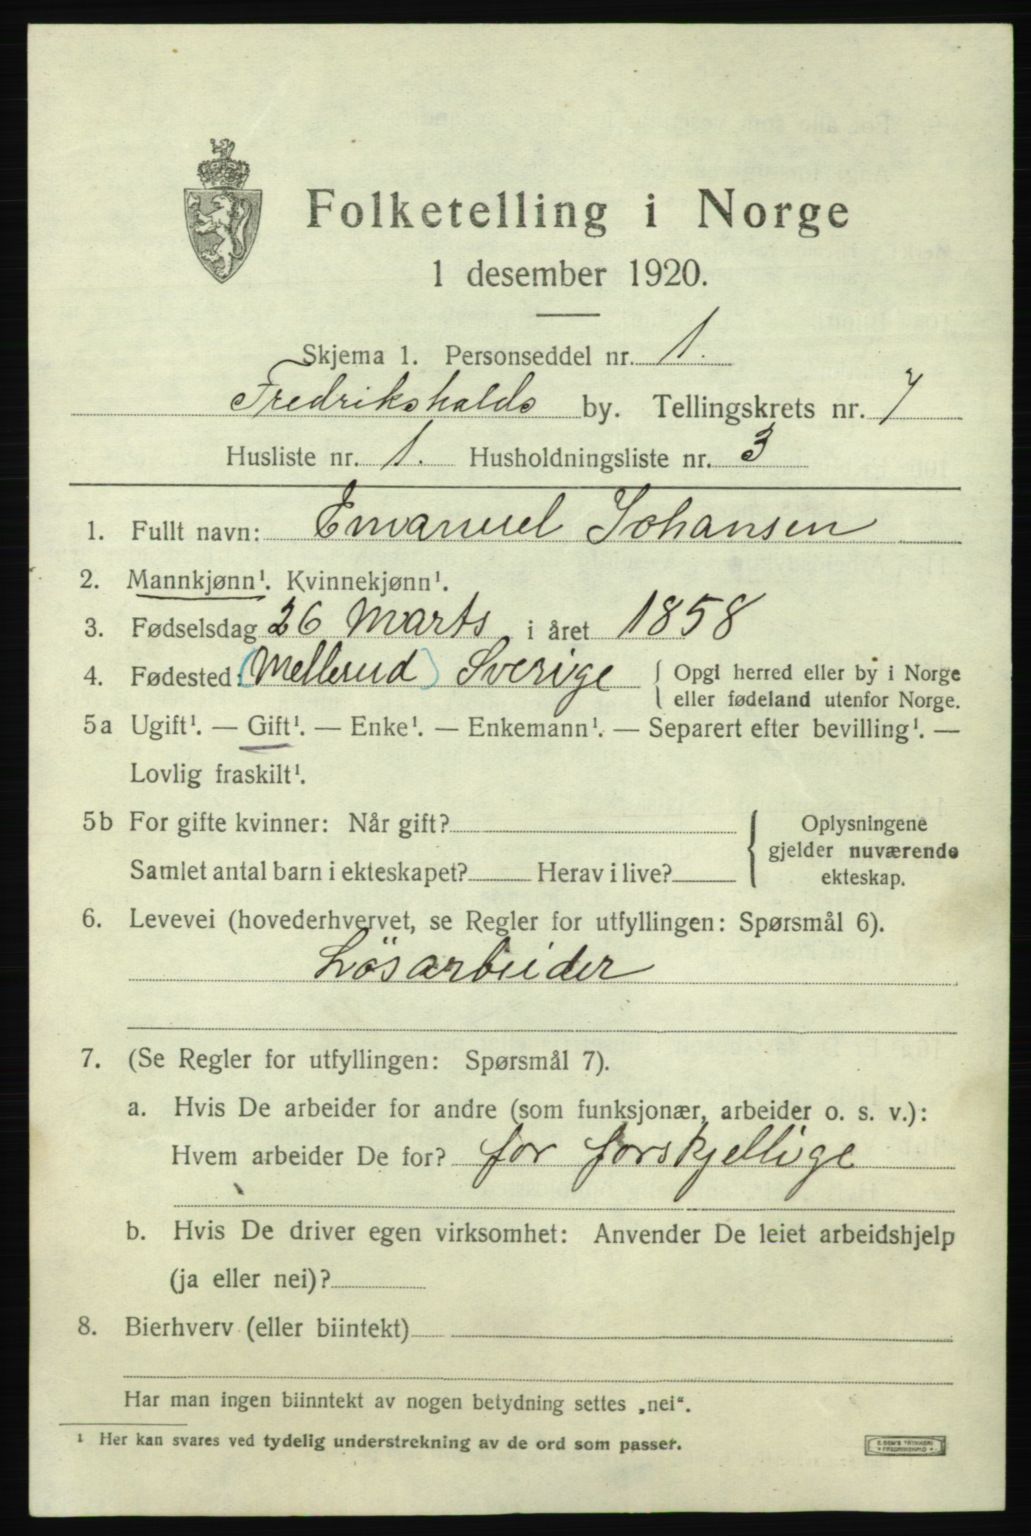 Folketelling i Norge
1 desember 1920.
Skjema 1. Personseddel nr. 1.
Fredrikshalds by. Tellingskrets nr. 7
Husliste nr. 1. Husholdningsliste nr. 3
1. Fullt navn: Emanuel Johansen
2. Mannkjønn¹. Kvinnekjønn¹.
3. Fødselsdag 26 Marts i året 1858
4. Fødested: (Mellerud) Sverige { Opgi herred eller by i Norge
eller fødeland utenfor Norge.
5a Ugift¹. — Gift¹. — Enke¹. — Enkemann¹. — Separert efter bevilling¹. —
Lovlig fraskilt¹.
5b For gifte kvinner: Når gift? { Oplysningene
gjelder nuværende
Samlet antal barn i ekteskapet? Herav i live?
ekteskap.
6. Levevei (hovederhvervet, se Regler for utfyllingen: Spørsmål 6).
Løsarbeider
7. (Se Regler for utfyllingen: Spørsmål 7).
a. Hvis De arbeider for andre (som funksjonær, arbeider o. s. v.):
Hvem arbeider De for? for forskjellige
b. Hvis De driver egen virksomhet: Anvender De leiet arbeidshjelp
(ja eller nei)?
8. Bierhverv (eller biintekt)
Har man ingen biinntekt av nogen betydning settes „nei“.
¹ Her kan svares ved tydelig understrekning av de ord som passer.